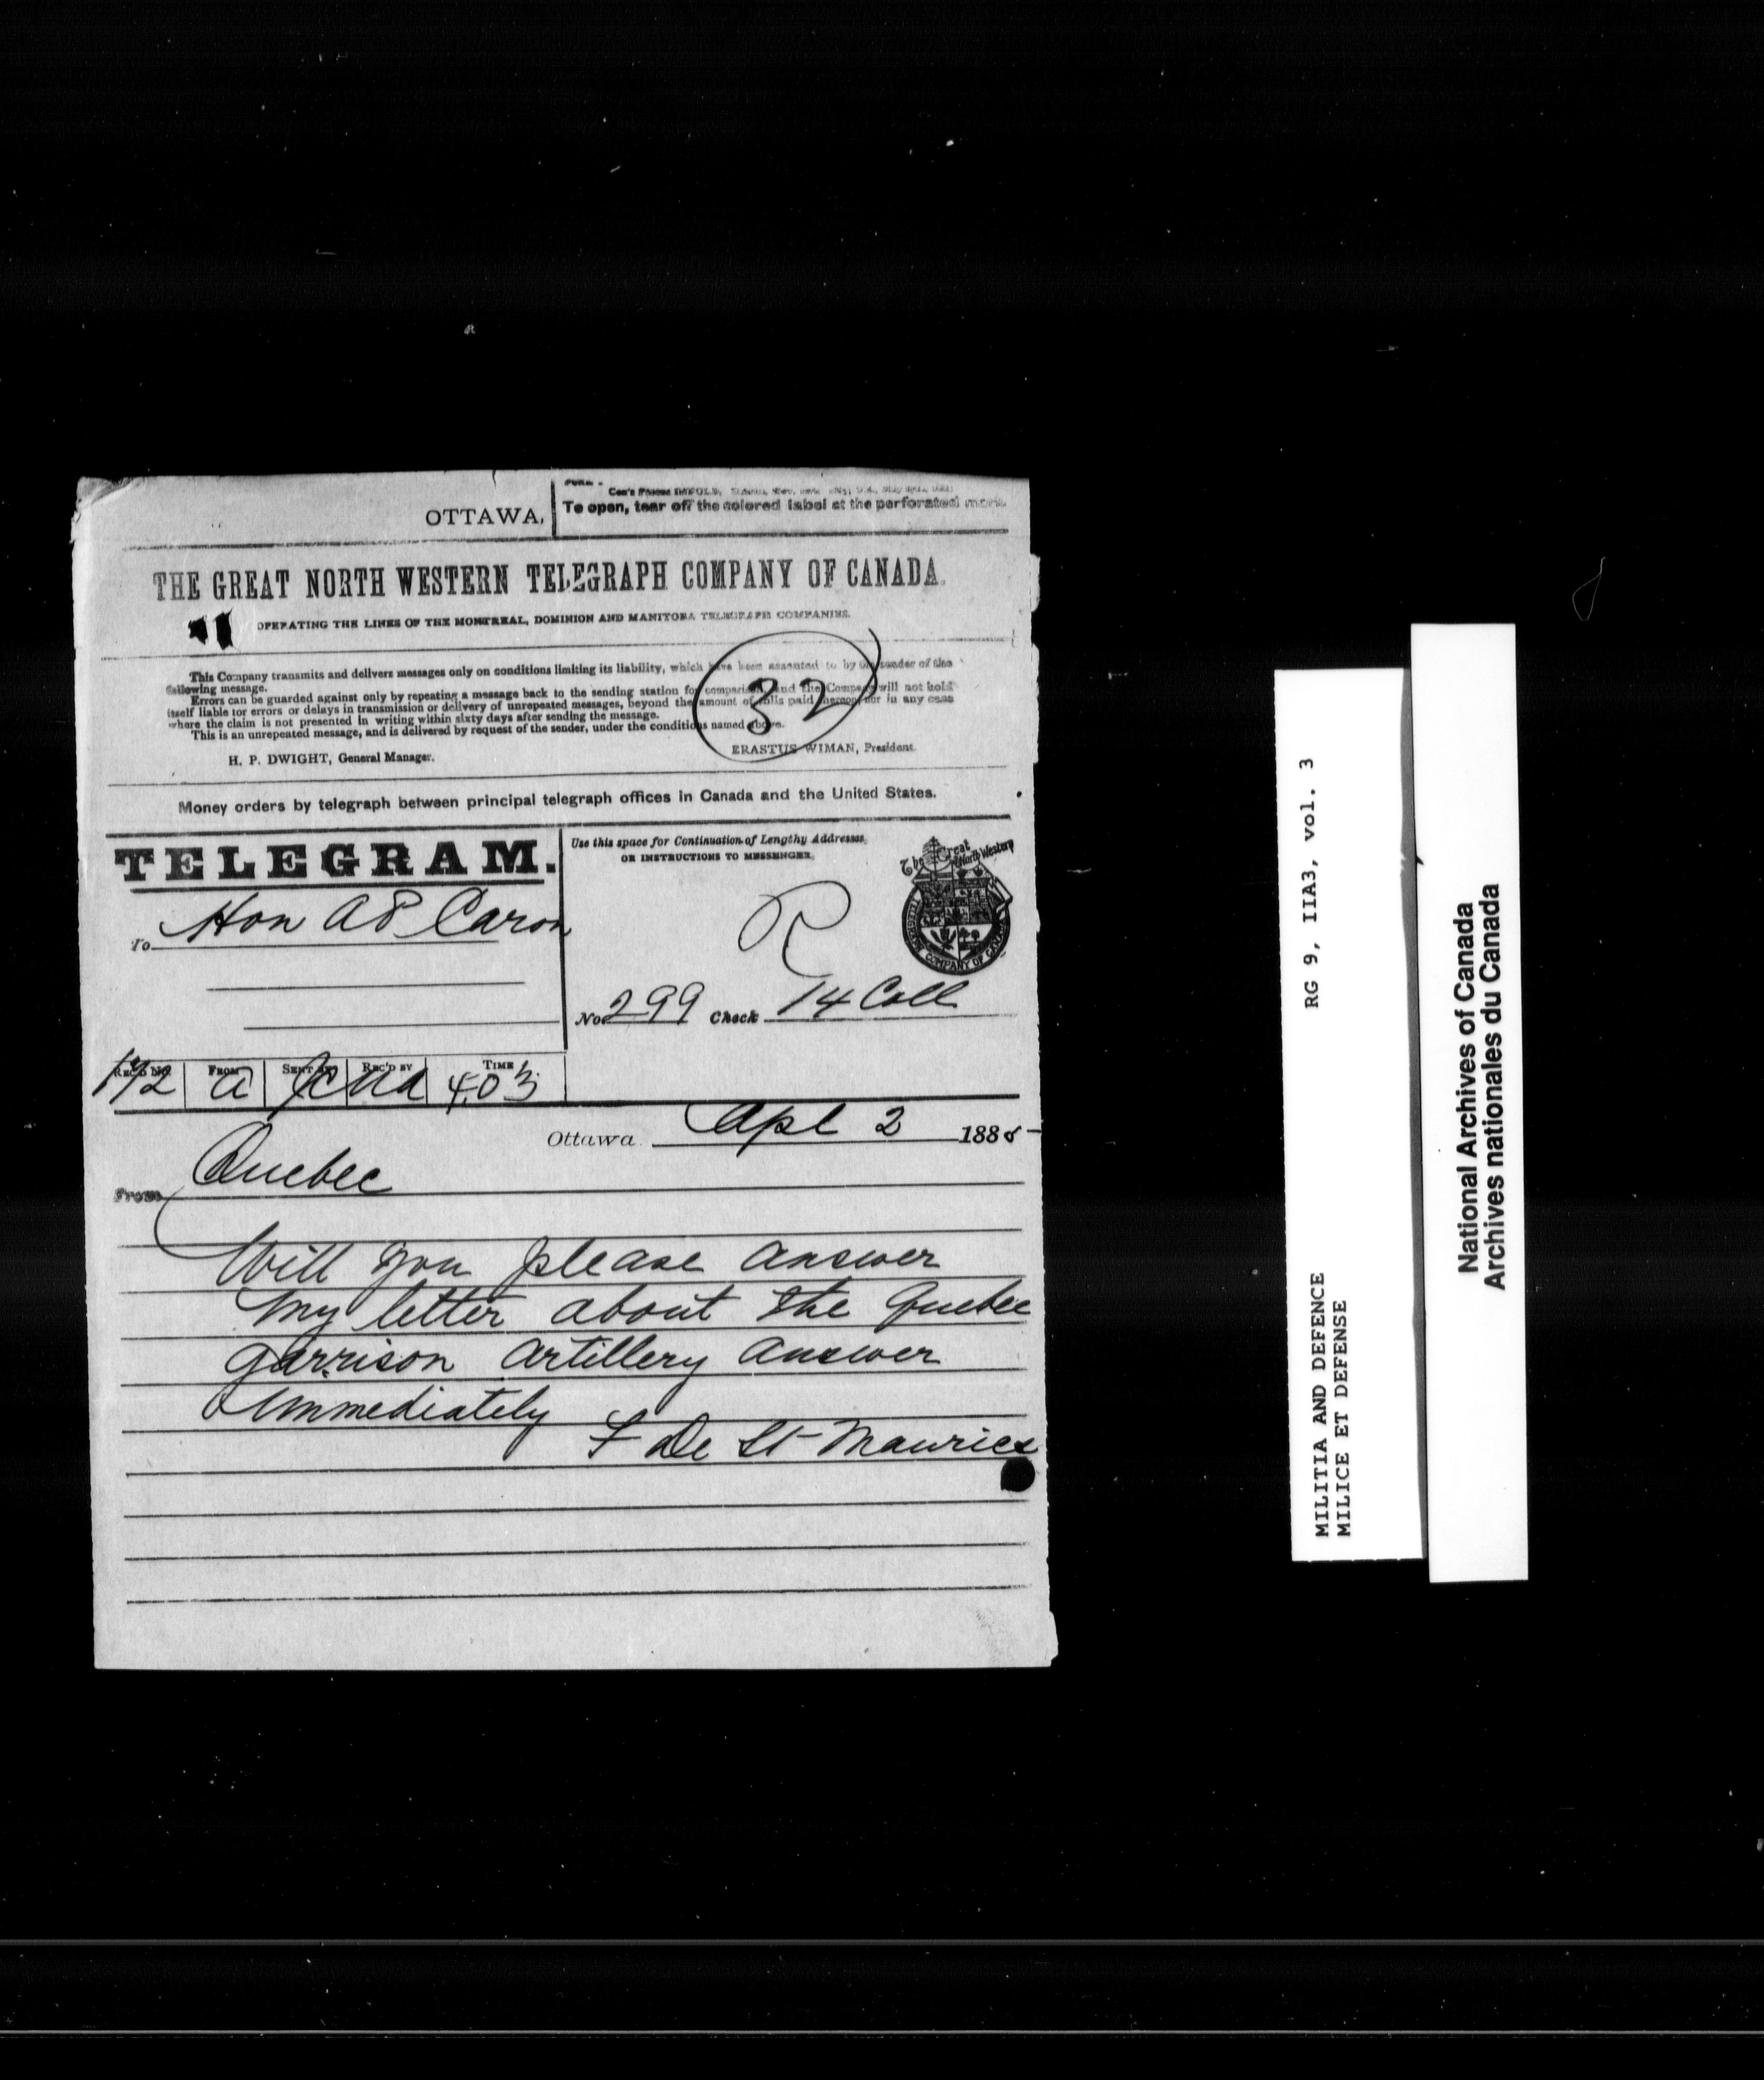 OTTAWA,
To open, tear off the colored label at the perforated mark.
THE GREAT NORTH WESTERN TELEGRAPH COMPANY OF CANADA.
OPERATING THE LINES OF THE MONTREAL, DOMINION AND MANITOBA TELEGRAPH COMPANIES.
This Company transmits and delivers messages only on conditions limiting its liability, which have been assented to by the sender of the
following message.
Errors can be guarded against only by repeating a message back to the sending station for comparison, and the Company will not hold
itself liable for errors or delays in transmission or delivery of unrepeated messages, beyond the amount of tolls paid thereon, nor in any case
where the claim is not presented in writing within sixty days after sending the message.
This is an unrepeated message, and is delivered by request of the sender, under the conditions named above.
32
H. P. DWIGHT, General Manager.
ERASTUS WIMAN, President.
Money orders by telegraph between principal telegraph offices in Canada and the United States.
TELEGRAM.
Use this space for Continuation of Lengthy Addresses,
OR INSTRUCTIONS TO MESSENGER.
The Great North Western
TELEGRAPH COMPANY OF CANADA
To Hon A P Caron
R
No. 299 Check 14 Coll
REC'D No. FROM SENT BY REC'D BY TIME
a 4.03
Ottawa Apl 2 1885
From Quebec
Will you please answer
my letter about the Quebec
Garrison Artillery answer
immediately
F De St-Maurice
MILITIA AND DEFENCE RG 9, IIA3, vol. 3
MILICE ET DEFENSE
National Archives of Canada
Archives nationales du Canada